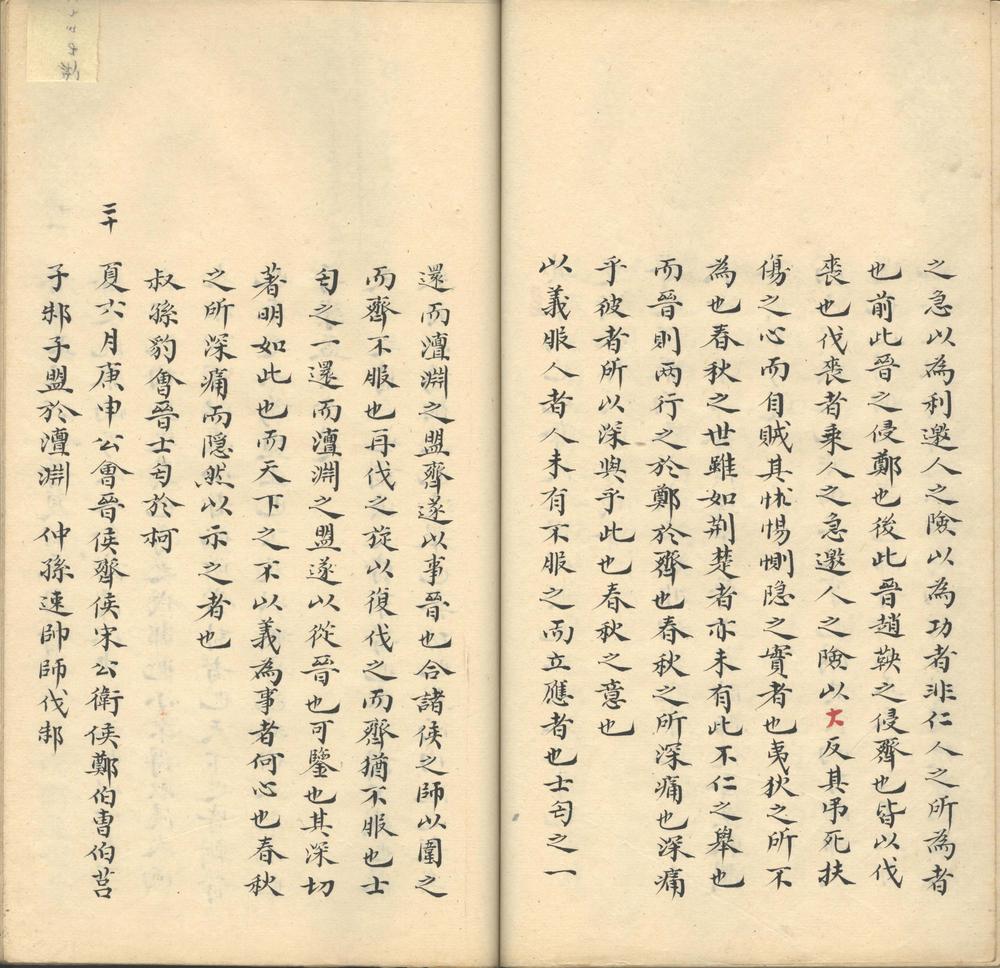 之急以為利邀人之險以為功者非仁人之所為者
也前此晉之侵鄭也後此晉趙鞅之侵齊也皆以伐
喪也伐喪者乘人之急邀人之險以大反其吊死扶
傷之心而自賊其怵惕惻隐之實者也夷狄之所不
為也春秋之世雖如荆楚者亦未有此不仁之舉也
而晉則两行之於鄭於齊也春秋之所深痛也深痛
乎彼者所以深與乎此也春秋之意也
以義服人者人未有不服之而立應者也士匄之一
還而澶淵之盟齊遂以事晉也合諸侯之師以圍之
而齊不服也再伐之旋以復伐之而齊猶不服也士
匄之一還而澶淵之盟遂以從晉也可鑒也其深切
著明如此也而天下之不以義為事者何心也春秋
之所深痛而隠然以示之者也
叔孫豹會晉士匄於柯
二十
夏六月庚申公會晉侯齊侯宋公衛侯鄭伯曹伯莒
子邾子盟於澶淵 仲孫速帥師伐邾